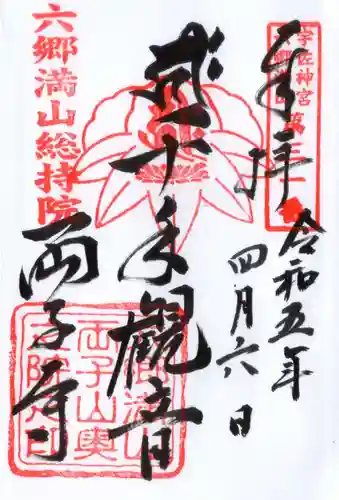 奉拝
宇佐神宮
六郷満山
令和五年
四月六日
手觀音
六郷満山総持院
両子寺
両子山奥